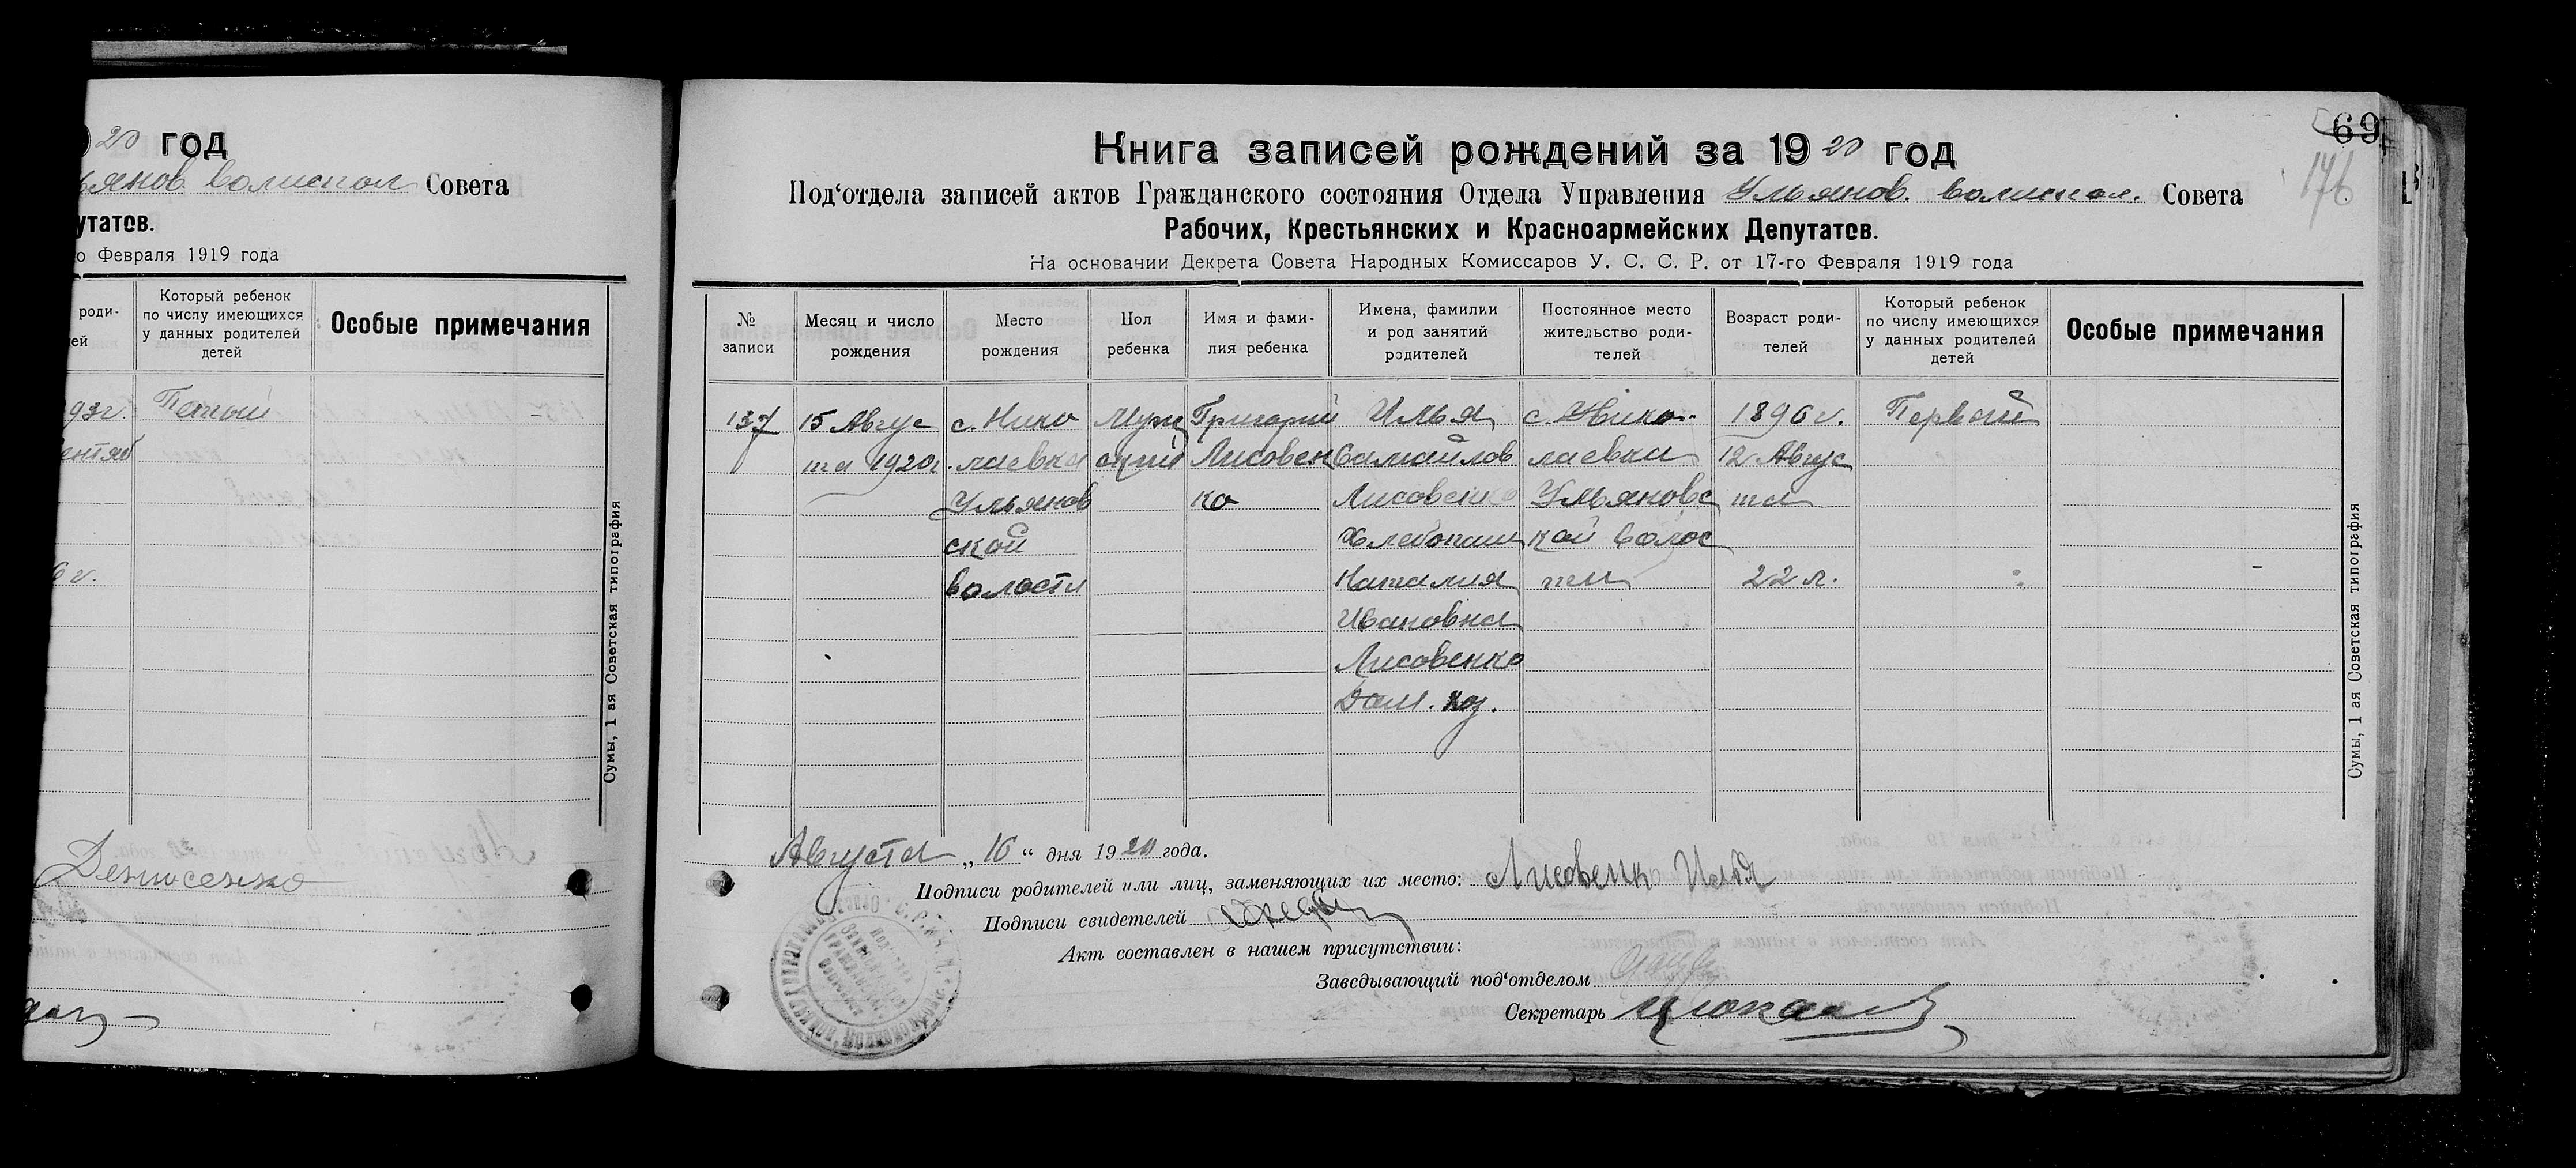 20 год
Совета
утатов.
о Февраля 1919 года
роди-
ей
Который ребенок
по числу имеющихся
у данных родителей
детей
Особые примечания
93г.
Пятый
ентяб
6 г.
Сумы, 1 ая Советская типография
Денисенко
69
176
Книга записей рождений за 1920 год
Под‘отдела записей актов Гражданского состояния Отдела Управления Ульянов. волиспол. Совета
Рабочих, Крестьянских и Красноармейских Депутатов.
На основании Декрета Совета Народных Комиссаров У. С. С. Р. от 17-го Февраля 1919 года
№
записи
Месяц и число
рождения
Место
рождения
Пол
ребенка
Имя и фами-
лия ребенка
Имена, фамилии
и род занятий
родителей
Постоянное место
жительство роди-
телей
Возраст роди-
телей
Который ребенок
по числу имеющихся
у данных родителей
детей
Особые примечания
137
15 Авгус
та 1920г.
с. Нико
лаевка
Ульянов
ской
волости
Муж
ской
Григорий
Лисовен
ко
Илья
Самойлов
Лисовенко
Хлебопаш
Наталия
Ивановна
Лисовенко
Дом. хоз.
с. Нико-
лаевки
Ульяновс
кой волос
ти
1896 г.
12 Авгус
та
22 л.
Первый
Сумы, 1 ая Советская типография
Августа „16“ дня 1920 года.
Подписи родителей или лиц, заменяющих их место: Лисовенк Илья
Подписи свидетелей
Акт составлен в нашем присутствии:
Заведывающий под‘отделом
Секретарь